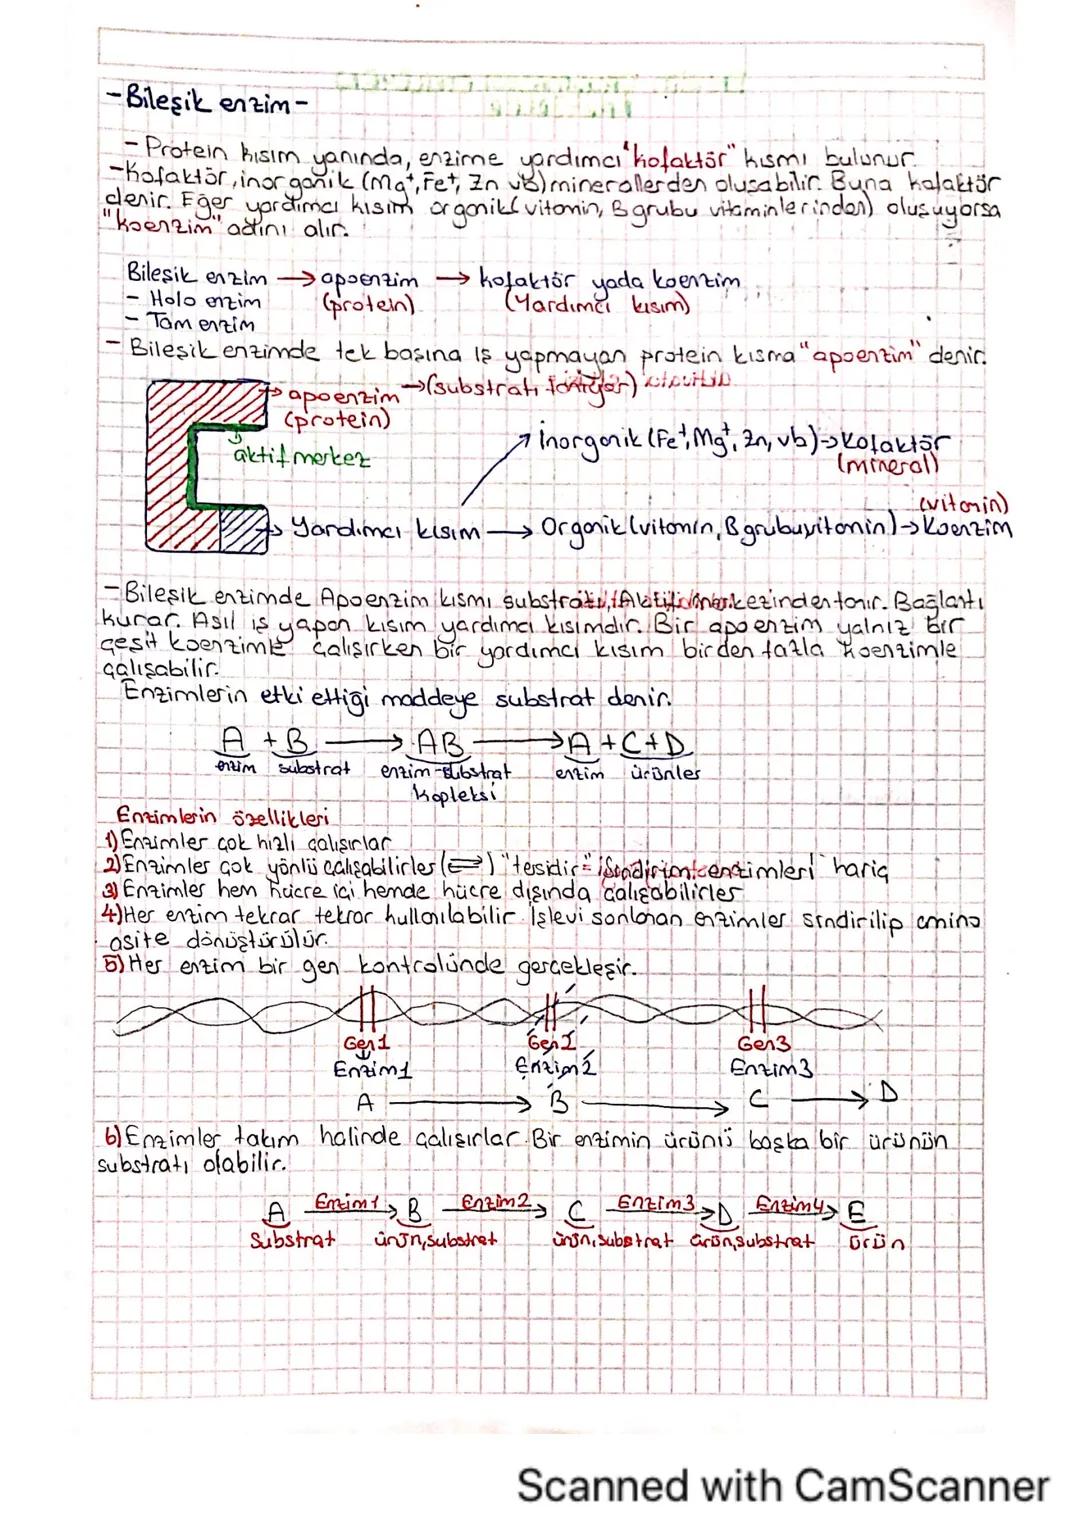 -Bileşik enzim-
- Protein kısım yanında, enzime yardımcı "kofaktör" kısmı bulunur.
-Kofaktör, inorganik (Mg⁺, Fe⁺, Zn vb) minerallerden oluşabilir. Buna kofaktör
denir. Eğer yardımcı kısım organik (vitamin, B grubu vitaminlerinden) oluşuyorsa
"koenzim" adını alır.
Bileşik enzim → apoenzim → kofaktör yada koenzim
- Holo enzim (protein) (Yardımcı kısım)
- Tam enzim
- Bileşik enzimde tek başına iş yapmayan protein kısma "apoenzim" denir.
→ apoenzim → (substratı
(protein)
aktif merkez
İnorganik (Fe⁺, Mg⁺, Zn, vb) → Kofaktör
(mineral)
(vitamin)
→ Yardımcı kısım → Organik (vitamin, B grubu vitamin) → Koenzim
- Bileşik enzimde Apoenzim kısmı substratı, Aktif merkezinden tanır. Bağlantı
kurar. Asıl iş yapan kısım yardımcı kısımdır. Bir apoenzim yalnız bir
çeşit koenzimle çalışırken bir yardımcı kısım birden fazla koenzimle
çalışabilir.
Enzimlerin etki ettiği maddeye substrat denir.
A + B → AB → A + C + D
enzim substrat enzim-substrat enzim ürünler
kopleksi
Enzimlerin özellikleri
1) Enzimler çok hızlı çalışırlar
2) Enzimler çok yönlü çalışabilirler (⇌) "tersidir" Sindirim enzimleri hariç
3) Enzimler hem hücre içi hemde hücre dışında çalışabilirler
4) Her enzim tekrar tekrar kullanılabilir. İşlevi sonlanan enzimler sindirilip amino
asite dönüştürülür.
5) Her enzim bir gen kontrolünde gerçekleşir.
Gen1 Gen2 Gen3
Enzim1 Enzim2 Enzim3
A → B → C → D
6) Enzimler takım halinde çalışırlar. Bir enzimin ürünü başka bir ürünün
substratı olabilir.
A Enzim1 → B Enzim2 → C Enzim3 → D Enzim4 → E
Substrat ürün, substrat ürün, substrat ürün, substrat ürün
Scanned with CamScanner